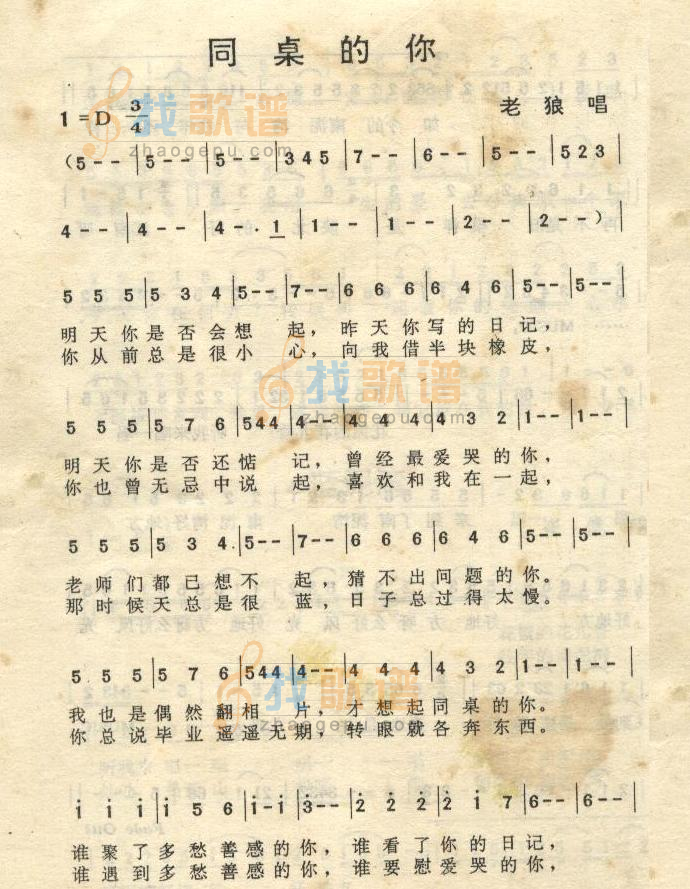 同桌的你
1=D 3/4
老狼唱
找歌谱
zhaogepu.com
(5--|5--|5--|345|7--|6--|5--|523|
4--|4--|4-·1|1--|1--|2--|2--)|
555|534|5--|7--|666|646|5--|5--|
明天你是否会想 起，昨天你写的日记，
你从前总是很小 心，向我借半块橡皮，
找歌谱
zhaogepu.com
555|576|544|4--|444|432|1--|1--|
明天你是否还惦 记，曾经最爱哭的你，
你也曾无忌中说 起，喜欢和我在一起，
555|534|5--|7--|666|646|5--|5--|
老师们都已想不 起，猜不出问题的你。
那时候天总是很 蓝，日子总过得太慢。
555|576|544|4--|444|432|1--|1--|
我也是偶然翻相 片，才想起同桌的你。
你总说毕业遥遥无期，转眼就各奔东西。
找歌谱
zhaogepu.com
i i i|i 5 6|i-i|3̇--|2̇ 2̇ 2̇|2̇ i 7|6--|6--|
谁聚了多愁善感的你，谁看了你的日记，
谁遇到多愁善感的你，谁要慰爱哭的你，